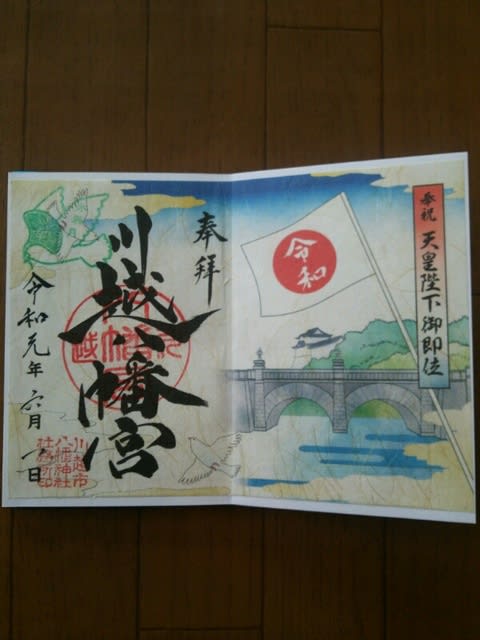 奉祝 天皇陛下御即位
令和
奉拝
川越八幡宮
令和元年 六月 一日
川越市
八幡神社
社務所印